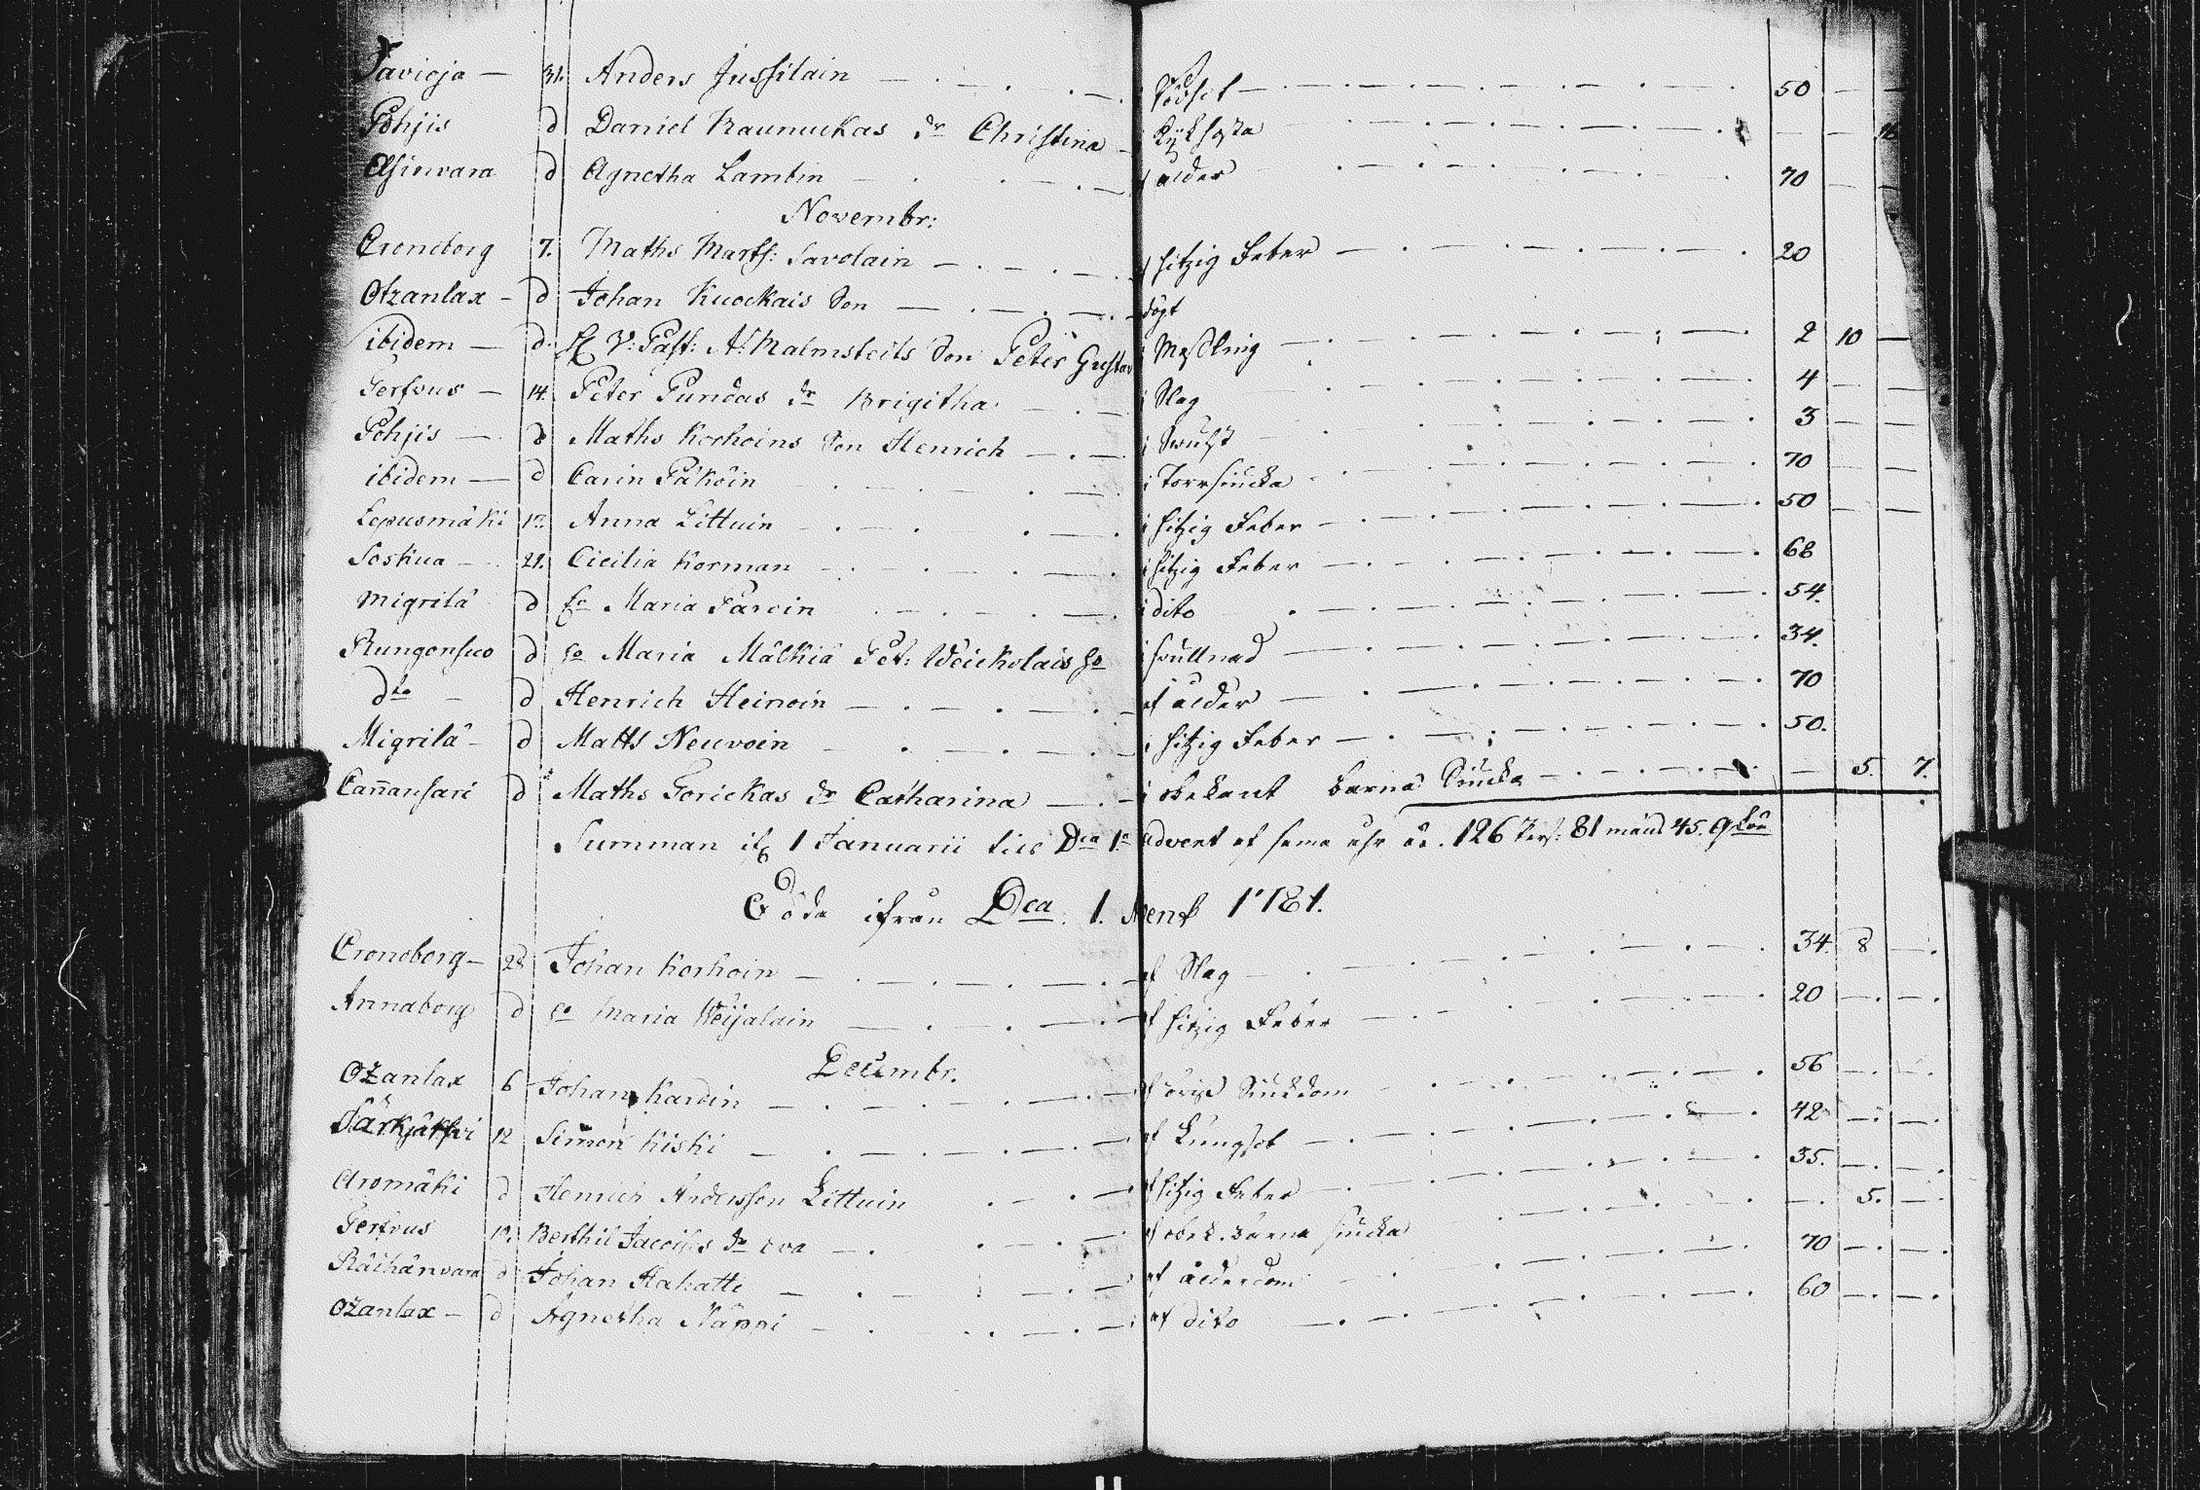 Savioja — 31. Anders Jussilain — i Rödsot — 50 — —
Pohjis d Daniel Raunukas dr Christina — i Kykhosta — —
Elsinvara d Agnetha Lambin — af ålder 70 — —
Novembr:
Croneborg 7. Maths Matts: Savolain — af hitzig Feber — 20
Otzanlax — d Johan Kuockais Son — dögt
ibidem — d. V: Past: A: Malmsteits Son Peter Gustav i Mäßling — 2 10 —
Gerfvus — 14. Peter Pundas dr Brigitha — i Slag 4 — —
Pohjis — d Maths Korhoins Son Henrich — i Swulst 3 — —
ibidem — d Carin Päköin — i Torrsiucka 70 — —
Lepusmäki Anna Littuin — i hitzig Feber — 50 — —
Soskua — 21. Cicilia Korman — i hitzig Feber — 68
Migrilä d Maria Parvin i dito 54.
Rungonsuo d Maria Mälkiä Pet: Weickolais i swullnad — 34.
dto — d Henrich Heinoin — af ålder — 70
Migrilä — d Matts Neuvoin — i hitzig Feber — 50.
Cañansari d Maths Gorickas dr Catharina — i obekant barna Siucka — — 5. 7.
Summan if 1 Januarii till Dca 1a Advent af sama åhr är. 126 Pers: 81 mank 45. qkön
Döde ifrån Dca: 1. Advent 1781.
Croneborg — 28 Johan Korhoin — af Slag — 34. 8 —
Annaborg d Maria Weijalain — af hitzig Feber — 20 — —
Decembr.
Ozanlax 6 Johan Karvin — af Siuckdom 56 — —
Särkjäksi 12 Simon Kiski — af Lungsot — 42 — —
Aromäki d Henrich Andersson Littuin — af hitzig Feber — 35. — —
Gerfvus Berthil Jacoiss dr Eva — af obek. barna siucka — 5. —
Räihänvara d Johan Hahatti — af ålderdom 70 — —
Ozanlax — d Agnetha Näppi — af dito — 60 — —